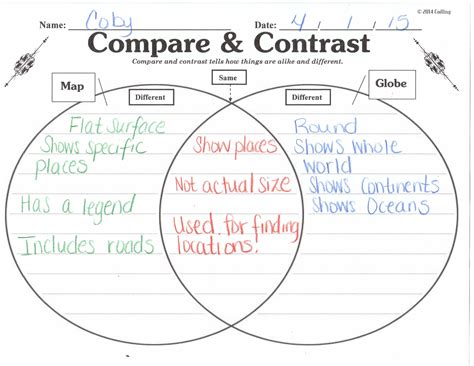 © 2014 Culling
Name: Coby Date: 4/1/15
Compare & Contrast
Compare and contrast tells how things are alike and different.
Map
Different
Same
Different
Globe
Flat surface
Shows specific
places
Has a legend
Includes roads
Show places
Not actual size
Used for finding
locations!
Round
Shows whole
world
Shows Continents
Shows Oceans